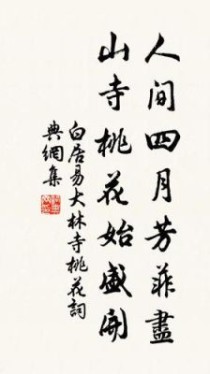 人间四月芳菲盡
山寺桃花始盛開
白居易大林寺桃花詞
典網集